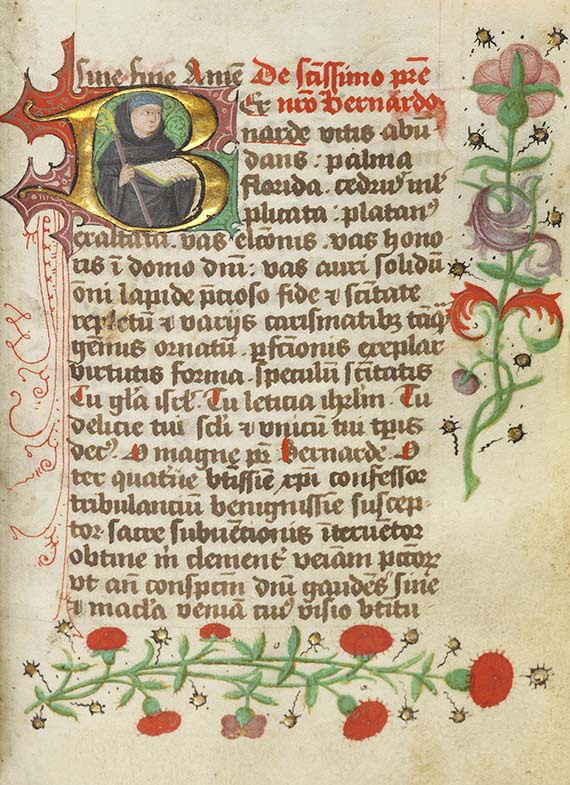 sine fine Amē De sc̄issimo pr̄e
Ex nr̄o Bernardo
B narde vitis abū
dans · palma
florida · cedrꝰ ml̄
plicata · platanꝰ
exaltata · vas elc̄onis · vas hono
ris ī domo dn̄i : vas auri solidū
om̄i lapide p̄cioso fide ⁊ sc̄itate
repletū ⁊ varijs carismatibꝫ
gemīs ornatū · ꝑfc̄ionis exēplar
virtutis forma · speculū sc̄itatis
Tu glā isrl̄ · Tu leticia ihrlm̄ · Tu
delicie tui scl̄i ⁊ vnicū tui tꝑis
decꝰ · O magne pr̄ Bernarde · O
ter quaterqꝫ btīssīe xp̄i confessor
tribulanciū benignissīe suscep
tor · sacre
obtine in clement̄ veniam pctōꝝ
vt an̄ conspc̄m dn̄i gaudēs sine
⁊ macl̄a veniā tuꝰ visio btītu